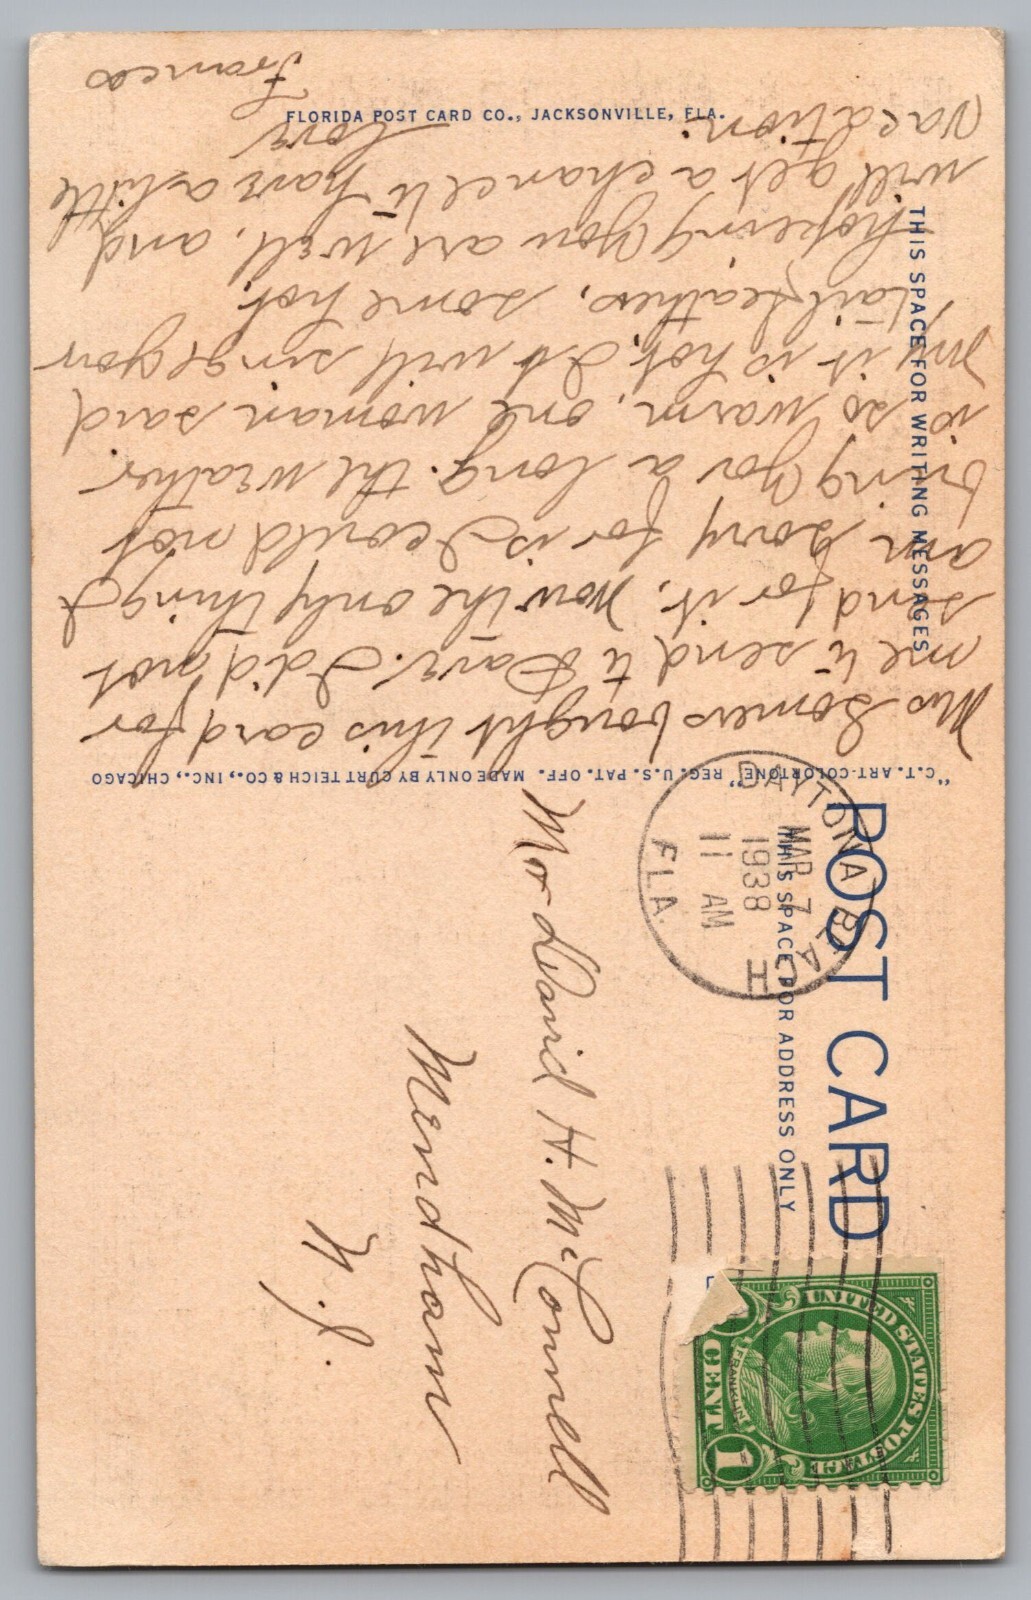 Mrs Somers bought this card for
me to send to Dave. I did not
send for it. Now the only thing I
am sorry for is I could not
bring you a long. the weather
is so warm, one woman said
My it is hot. It will singe you
tail feathers, some hot.
hopeing you are well, and
will get a chance to have a little
vacation.
Love
Frances
FLORIDA POST CARD CO., JACKSONVILLE, FLA.
THIS SPACE FOR WRITING MESSAGES
"C.T. ART-COLORTONE" REG. U.S. PAT. OFF. MADE ONLY BY CURT TEICH & CO., INC., CHICAGO
POST CARD
THIS SPACE FOR ADDRESS ONLY
DAYTONA BEACH
MAR 7
11 AM
1938
FLA.
UNITED STATES POSTAGE
FRANKLIN
1 CENT
Mr David H. McConnell
Mendham
N. J.